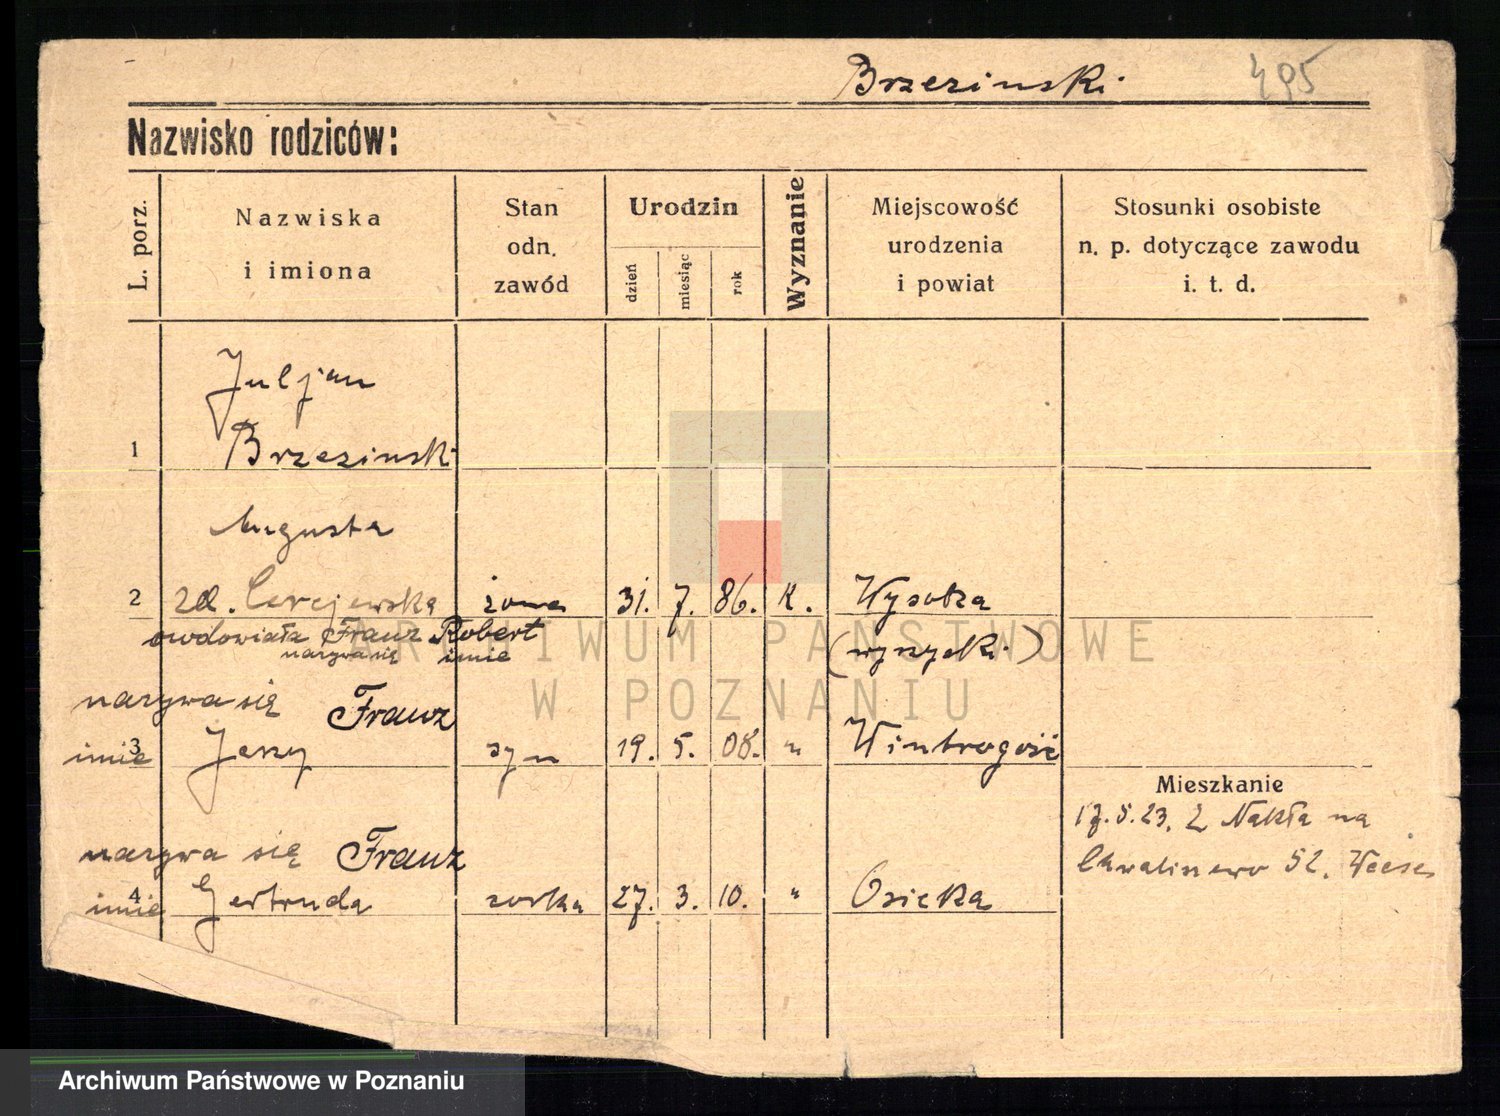 Brzezinski 495
Nazwisko rodziców:
L. porz.
Nazwiska
i imiona
Stan
odn.
zawód
Urodzin
dzień
miesiąc
rok
Wyznanie
Miejscowość
urodzenia
i powiat
Stosunki osobiste
n. p. dotyczące zawodu
i. t. d.
Juljan
1 Brzezinski
Augusta
2 zd. Cerejewska żona 31. 7. 86. K. Wysoka
owdowiała Franz Robert (wyrzyski)
nazywa się imie
nazywa się Franz
imie 3 Jerzy syn 19. 5. 08. " Wintrogość
Mieszkanie
17.5.23. Z Nakła na
nazywa się Franz
Chwaliszewo 52.
imie 4 Gertruda corka 27. 3. 10. " Osieka
ARCHIWUM PAŃSTWOWE
W POZNANIU
Archiwum Państwowe w Poznaniu